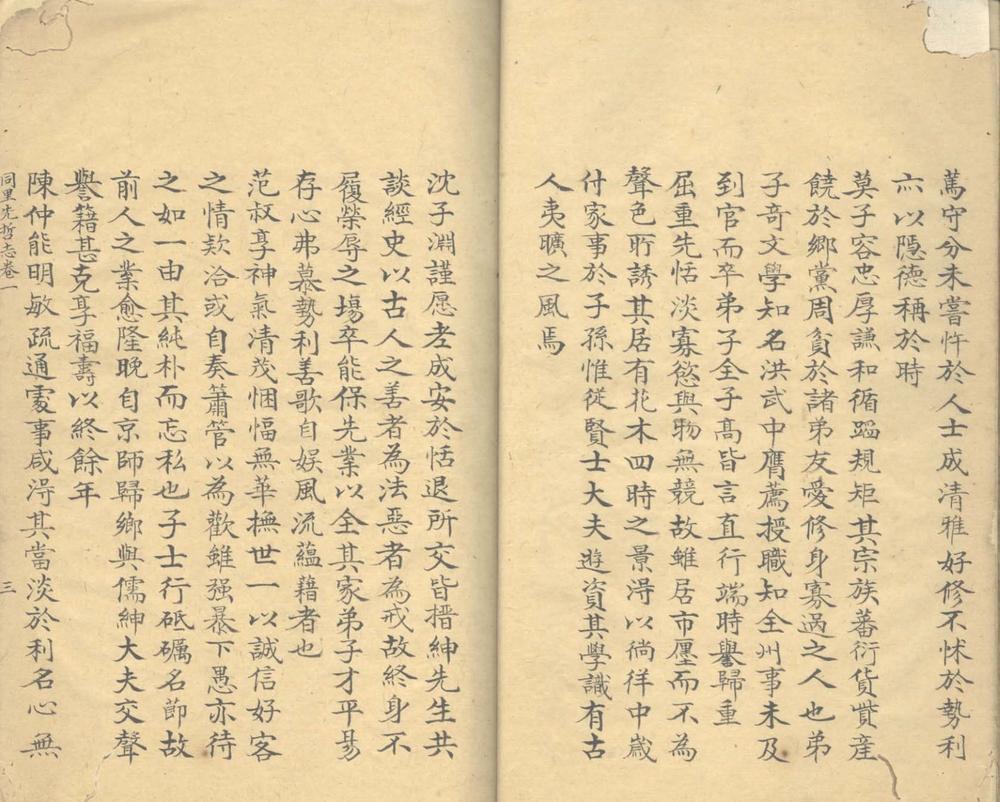 篤守分未嘗忤於人士成清雅好修不怵於勢利
亦以隠德稱於時
莫子容忠厚謙和循蹈規矩其宗族蕃衍貨貲產
饒於鄉黨周負於諸弟友愛修身寡過之人也弟
子奇文學知名洪武中膺薦授職知全州事未及
到官而卒弟子全子髙皆言直行端時譽歸重
屈重先恬淡寡慾與物無競故雖居市廛而不為
聲色所誘其居有花木四時之景淂以徜徉中歲
付家事於子孫惟從賢士大夫遊資其學識有古
人夷曠之風焉
沈子淵謹愿老成安於恬退所交皆搢紳先生共
談經史以古人之善者為法惡者為戒故終身不
履榮辱之塲卒能保先業以全其家弟子才平昜
存心弗慕勢利善歌自娱風流藴藉者也
范叔享神氣清茂悃愊無華撫世一以誠信好客
之情欵洽或自奏簫管以為歡雖强暴下愚亦待
之如一由其純朴而忘私也子士行砥礪名節故
前人之業愈隆晚自京師歸鄉與儒紳大夫交聲
譽籍甚克享福壽以終餘年
陳仲能明敏疏通處事咸淂其當淡於利名心無
同里先哲志卷一
三